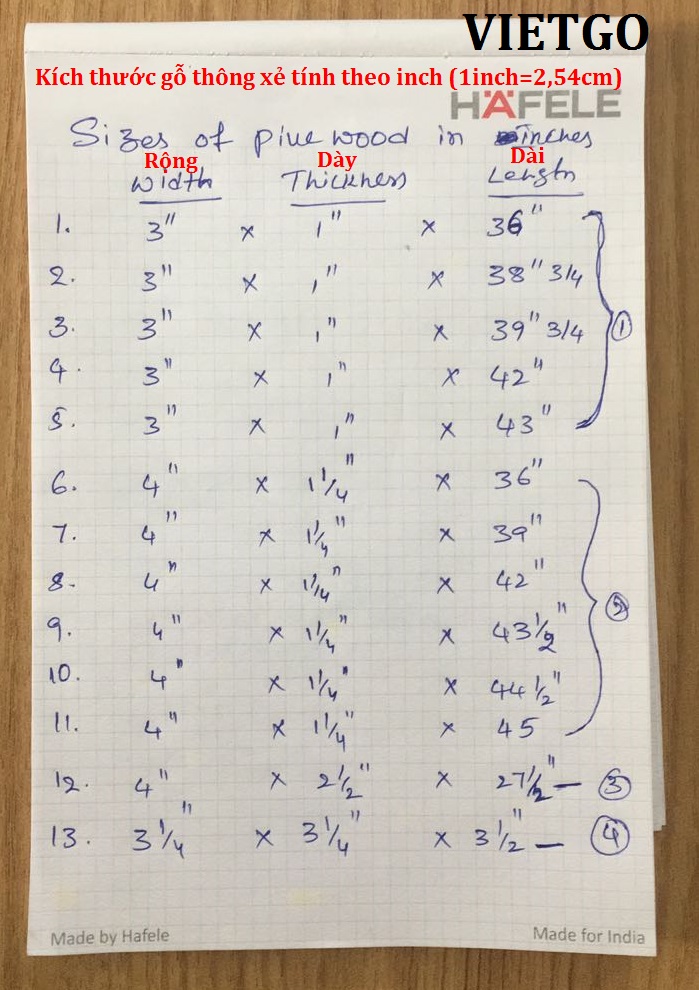 VIETGO
Kích thước gỗ thông xẻ tính theo inch (1inch=2,54cm)
HÄFELE
Sizes of pine wood in inches
Rộng Dày Dài
Width Thickness Length
1. 3" x 1" x 36"
2. 3" x 1" x 38" 3/4
3. 3" x 1" x 39" 3/4
4. 3" x 1" x 42"
5. 3" x 1" x 43"
①
6. 4" x 1 1/4" x 36"
7. 4" x 1 1/4" x 39"
8. 4" x 1 1/4" x 42"
9. 4" x 1 1/4" x 43 1/2"
10. 4" x 1 1/4" x 44 1/2"
11. 4" x 1 1/4" x 45
②
12. 4" x 2 1/2" x 27 1/2" — ③
13. 3 1/4" x 3 1/4" x 3 1/2" — ④
Made by Hafele Made for India